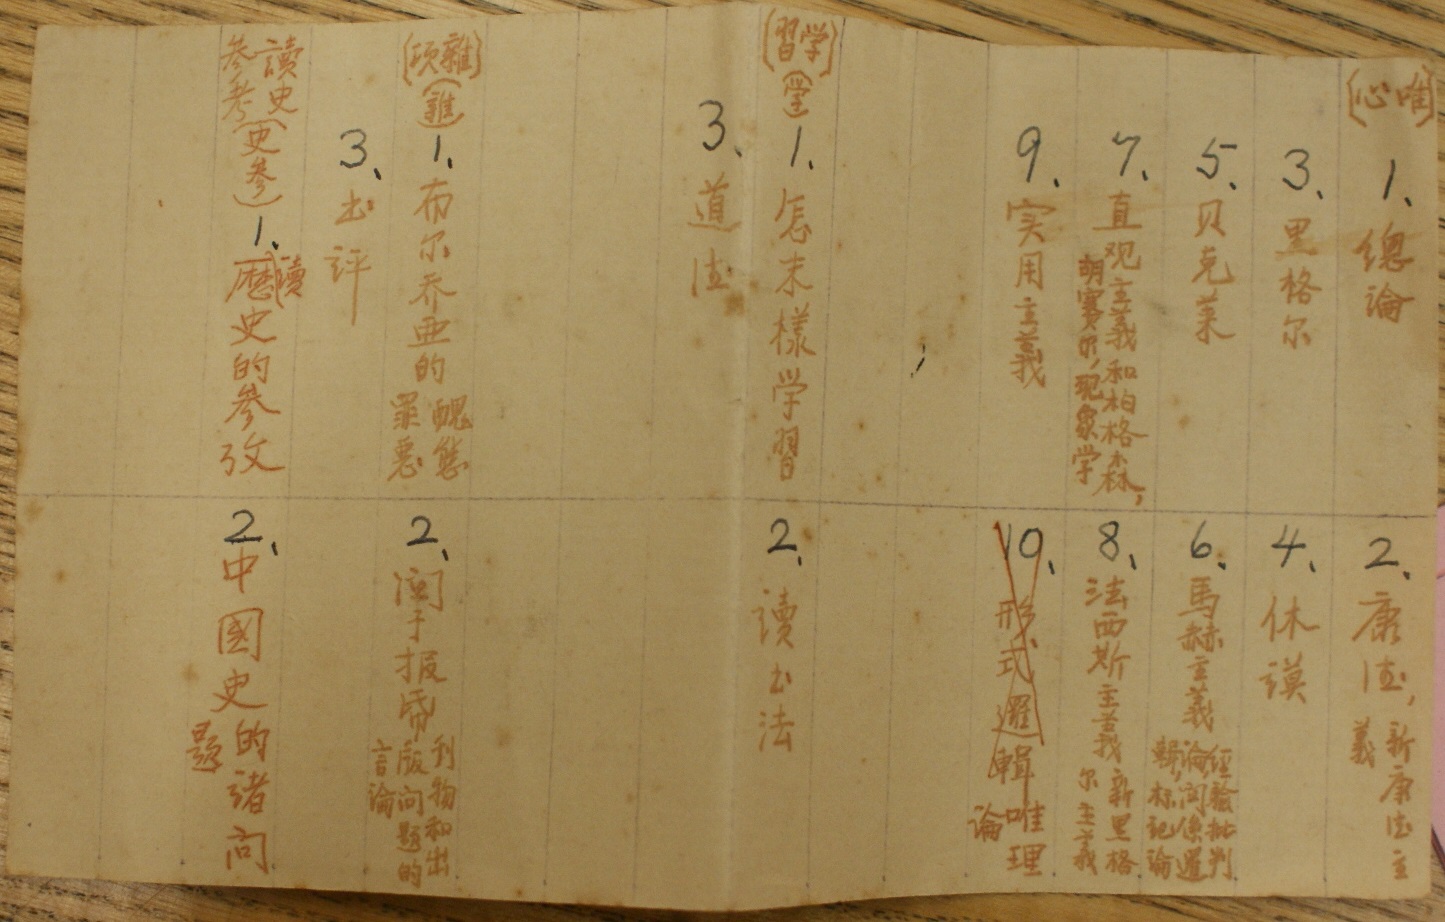 (唯心)
1、總論
2、康德，新康德主義
3、黑格尔
4、休謨
5、贝克莱
6、馬赫主義 經驗批判論，関係邏輯，标記論
7、直观主義和柏格森，
胡塞尔，现象学
8、法西斯主義 新黑格尔主義
9、实用主義
10、形式邏輯 唯理論
(学習)
(学)
1、怎末樣学習
2、讀书法
3、道德
(雜项)
(雜)
1、布尔乔亚的醜態罪惡
2、関于报帋刊物和出版问题的言論
3、书评
讀史参考
(史参)
1、(讀)歷史的參攷
2、中國史的诸问題